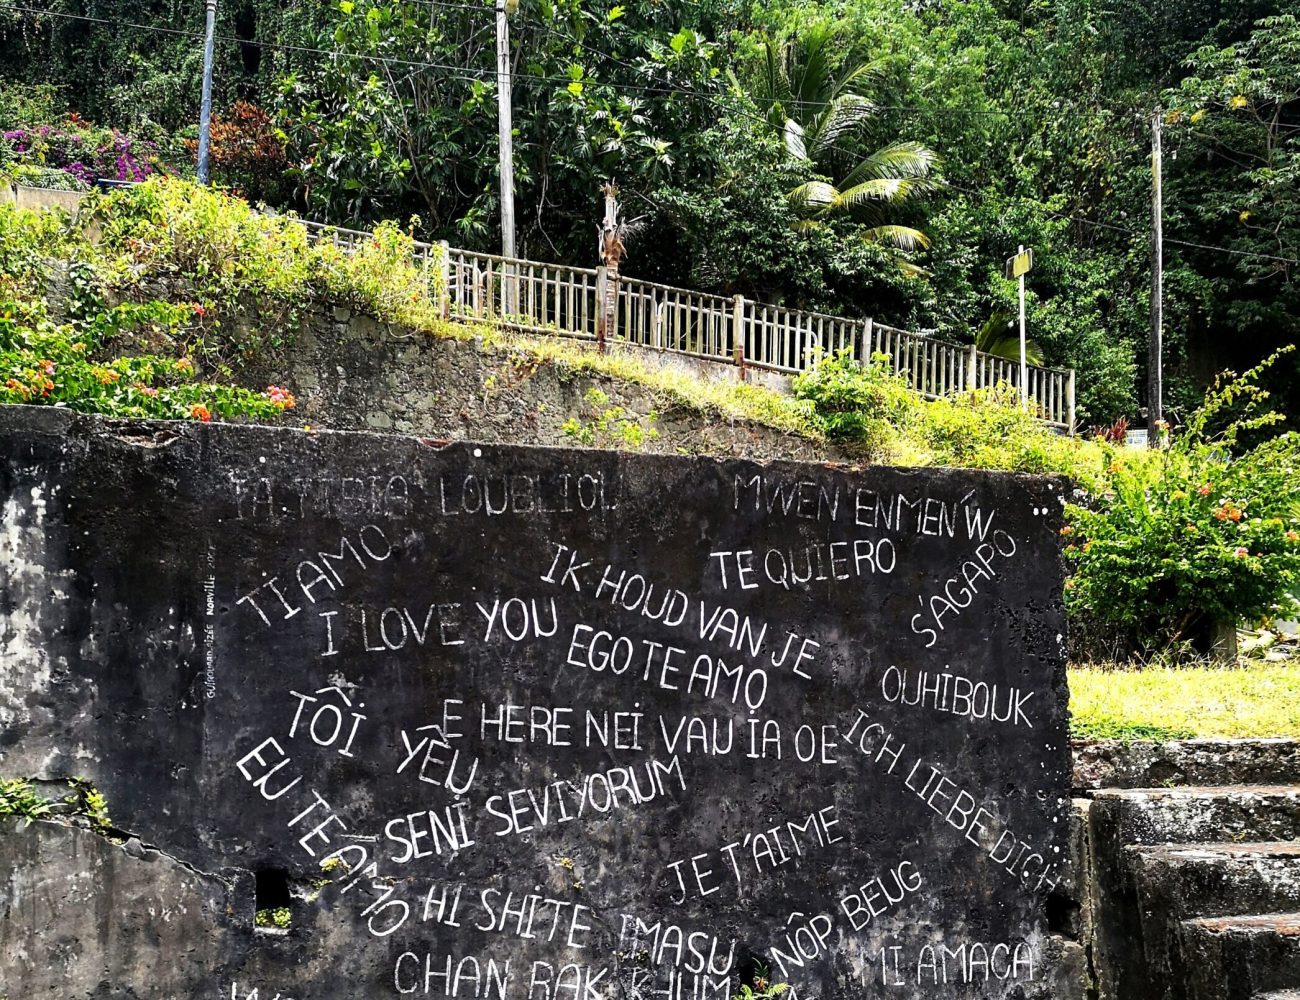 LOUBLIOU
MWEN ENMEN'W
TI AMO
IK HOUD VAN JE
TE QUIERO
S'AGAPO
I LOVE YOU
EGO TE AMO
OUHIBOUK
TÔI YÊU
E HERE NEI VAU IA OE
ICH LIEBE DICH
EU TE AMO
SENI SEVIYORUM
JE T'AIME
HI SHITE IMASU
NÔP BEUG
MI AMACA
CHAN RAK KHUM